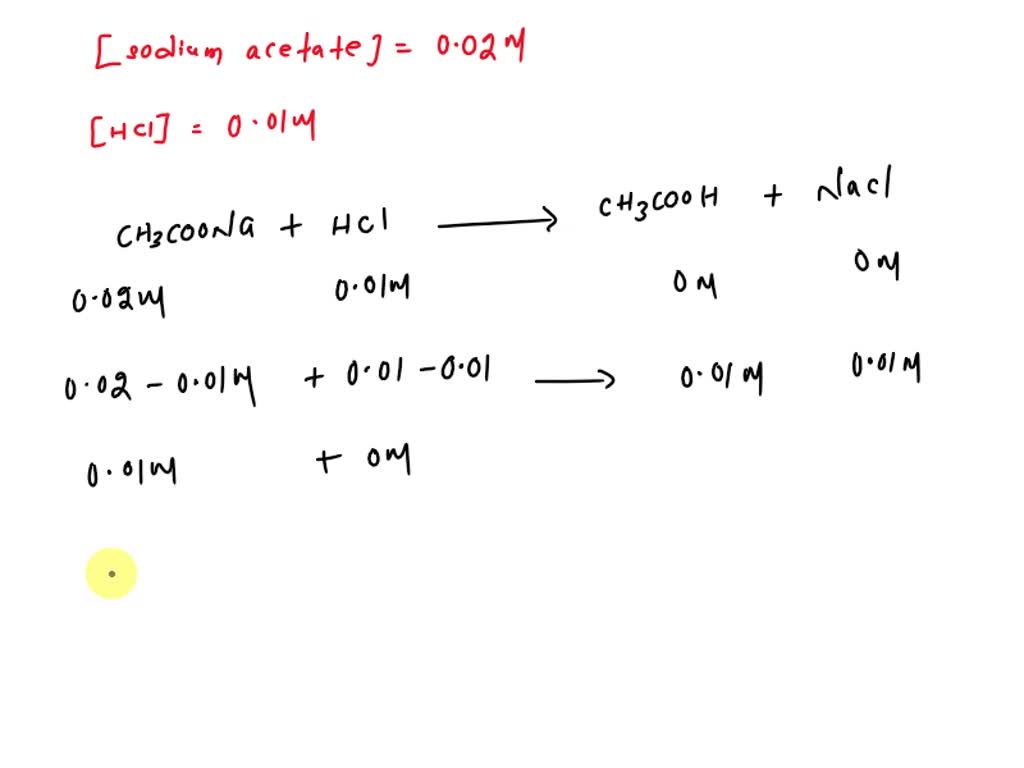 [sodium acetate] = 0.02 M
[HCl] = 0.01 M
CH3COONa + HCl ⟶ CH3COOH + NaCl
0.02 M 0.01 M 0 M 0 M
0.02 - 0.01 M + 0.01 - 0.01 ⟶ 0.01 M 0.01 M
0.01 M + 0 M